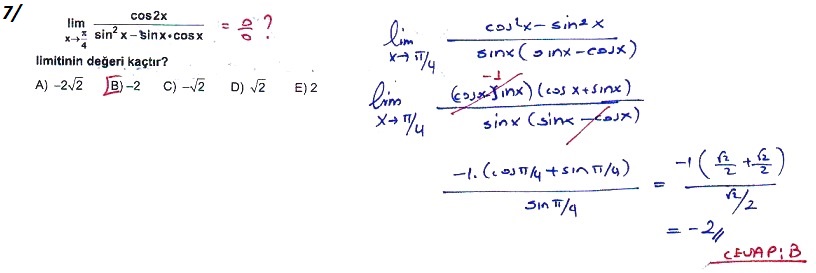 7/
lim x→π/4 cos2x / (sin²x – sinx•cosx) = 0/0 ?
limitinin değeri kaçtır?
A) –2√2 B) –2 C) –√2 D) √2 E) 2
lim x→π/4 (cos²x – sin²x) / (sinx(sinx – cosx))
lim x→π/4 -1 (cosx – sinx)(cosx + sinx) / (sinx(sinx – cosx))
-1.(cosπ/4 + sinπ/4) / sinπ/4 = -1(√2/2 + √2/2) / √2/2
= -2//
CEVAP: B